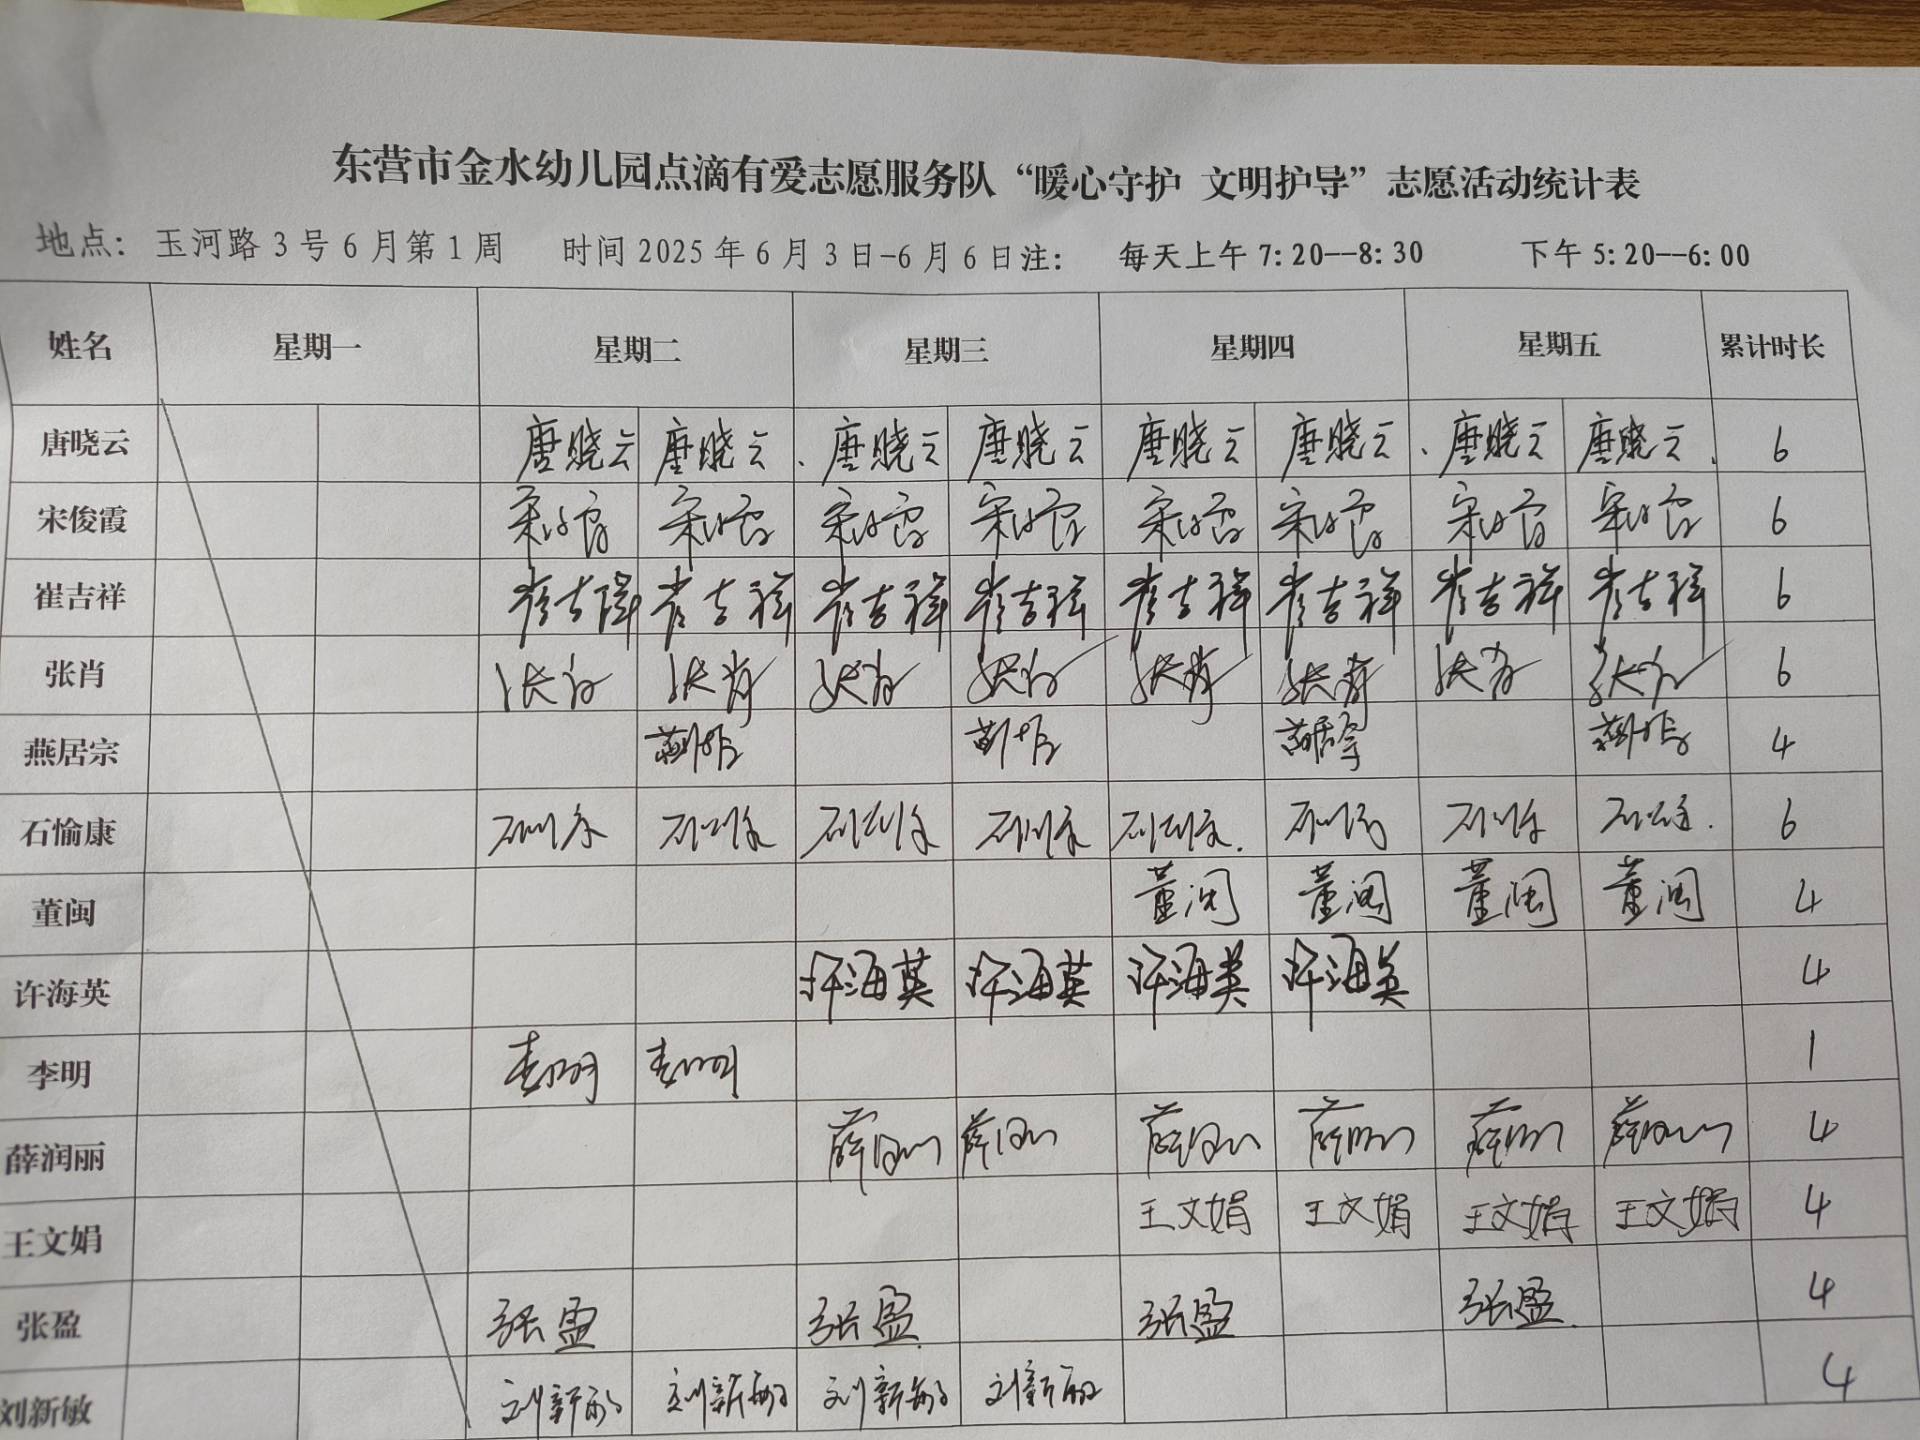 东营市金水幼儿园点滴有爱志愿服务队“暖心守护 文明护导”志愿活动统计表
地点：玉河路3号6月第1周 时间2025年6月3日-6月6日注： 每天上午7:20--8:30 下午5:20--6:00
姓名 星期一 星期二 星期三 星期四 星期五 累计时长
唐晓云 唐晓云 唐晓云 唐晓云 唐晓云 唐晓云 唐晓云 唐晓云 唐晓云 6
宋俊霞 宋俊霞 宋俊霞 宋俊霞 宋俊霞 宋俊霞 宋俊霞 宋俊霞 宋俊霞 6
崔吉祥 崔吉祥 崔吉祥 崔吉祥 崔吉祥 崔吉祥 崔吉祥 崔吉祥 崔吉祥 6
张肖 张肖 张肖 张肖 张肖 张肖 张肖 张肖 张肖 6
燕居宗 燕居宗 燕居宗 燕居宗 燕居宗 4
石愉康 石愉康 石愉康 石愉康 石愉康 石愉康 石愉康 石愉康 石愉康 6
董闽 董闽 董闽 董闽 董闽 4
许海英 许海英 许海英 许海英 许海英 4
李明 李明 李明 1
薛润丽 薛润丽 薛润丽 薛润丽 薛润丽 薛润丽 薛润丽 4
王文娟 王文娟 王文娟 王文娟 王文娟 4
张盈 张盈 张盈 张盈 张盈 4
刘新敏 刘新敏 刘新敏 刘新敏 刘新敏 4